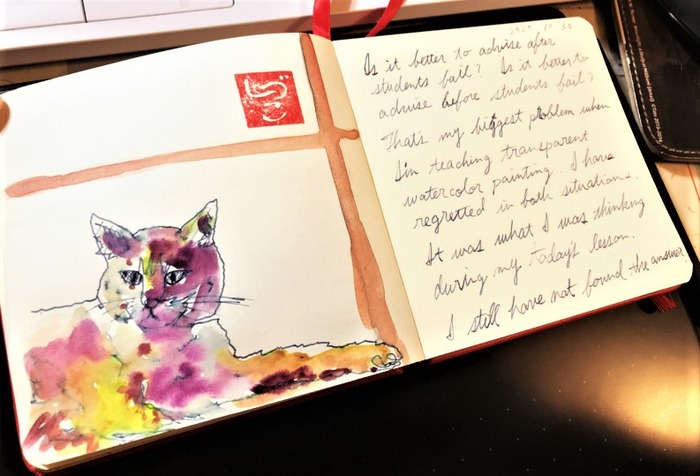 Is it better to advise after
students fail? Is it better to
advise before students fail?
That's my biggest problem when
I'm teaching transparent
watercolor painting. I have
regretted in both situations.
It was what I was thinking
during my today's lesson.
I still have not found the answer